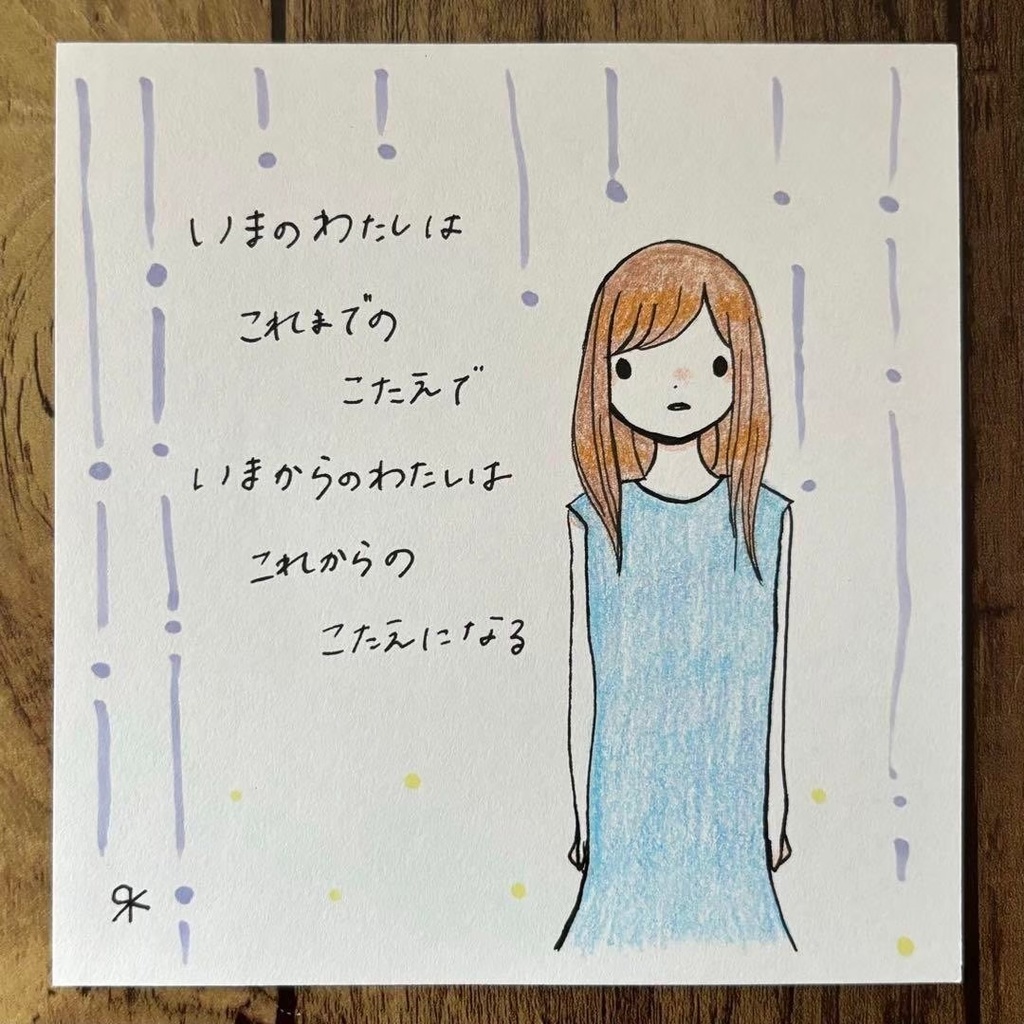 いまのわたしは
これまでの
こたえで
いまからのわたしは
これからの
こたえになる